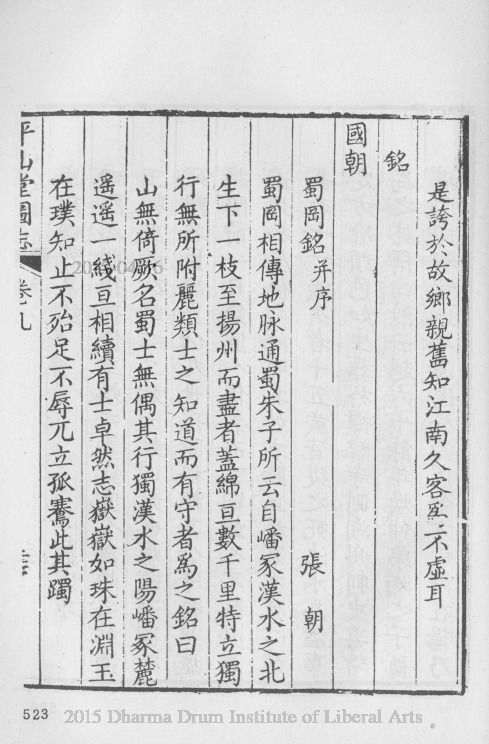 是誇於故鄉親舊知江南久客區二不虛耳
銘
國朝
蜀岡銘并序
張朝
蜀岡相傳地脉通蜀朱子所云自嶓冢漢水之北
生下一枝至揚州而盡者蓋綿亘數千里特立獨
行無所附麗類士之知道而有守者爲之銘曰
山無倚厥名蜀士無偶其行獨漢水之陽嶓冢麓
遥遥一綫亘相續有士卓然志嶽嶽如珠在淵玉
在璞知止不殆足不辱兀立孤騫此其躅
平山堂圖志
卷九
2015-04-16
523
2015 Dharma Drum Institute of Liberal Arts